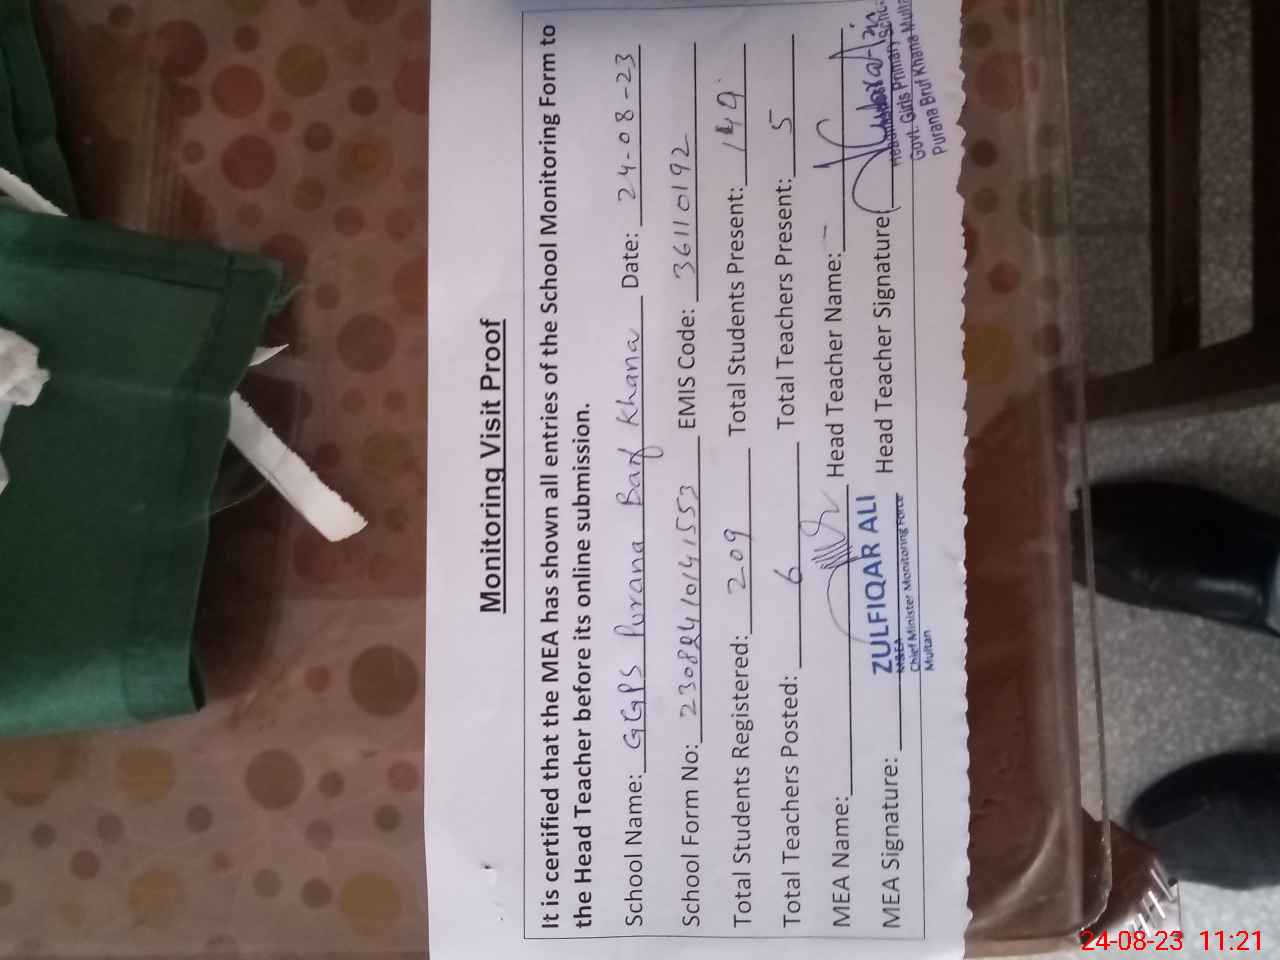 Monitoring Visit Proof
It is certified that the MEA has shown all entries of the School Monitoring Form to
the Head Teacher before its online submission.
School Name: GGPS Purana Barf Khana Date: 24-08-23
School Form No: EMIS Code: 36110192
Total Students Registered: 209 Total Students Present: 149
Total Teachers Posted: 6 Total Teachers Present: 5
MEA Name: Head Teacher Name:
ZULFIQAR ALI
MEA Signature: Head Teacher Signature
MEA
Chief Minister Monitoring Force
Multan
Govt. Girls Primary
Purana Bruf Khana Multan
24-08-23 11:21